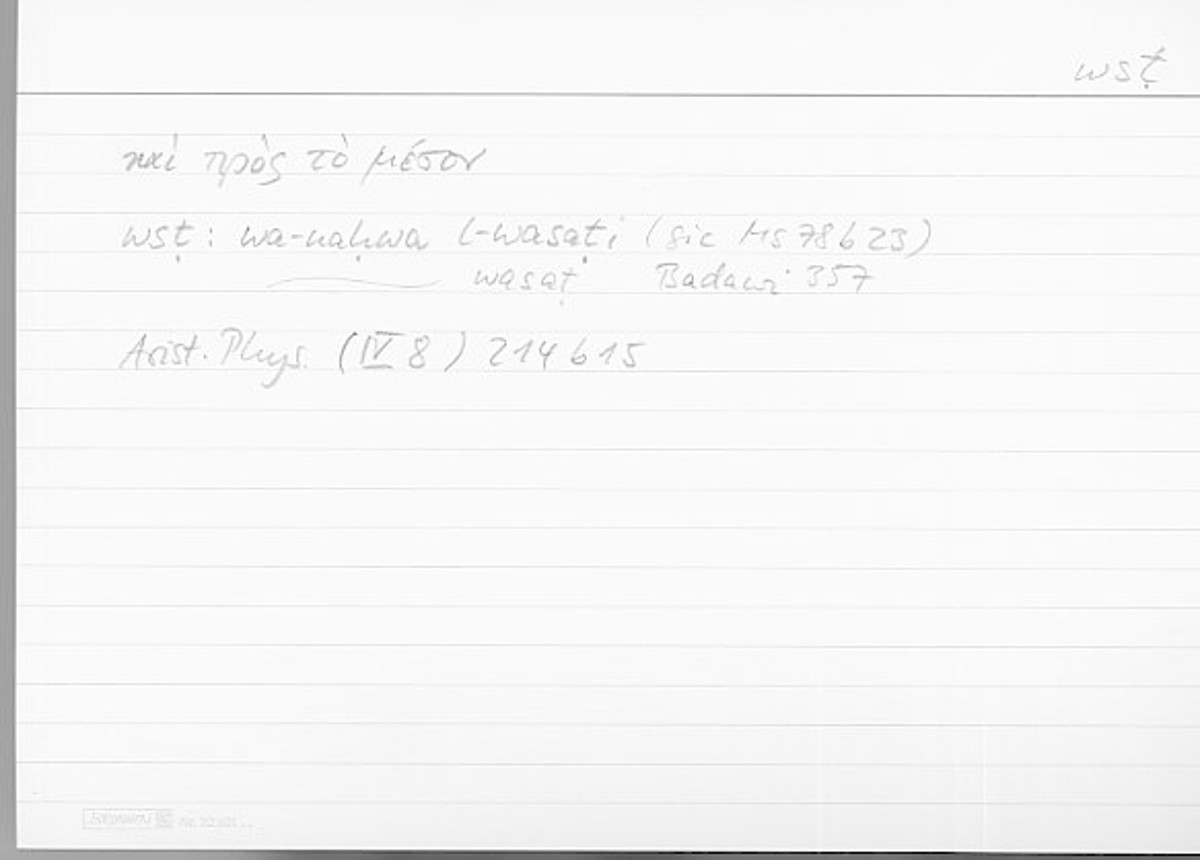 wsṭ
καὶ πρὸς τὸ μέσον
wsṭ: wa-naḥwa l-wasaṭi (sic Ms 78 b 23)
wasaṭ Badawi 357
Arist. Phys. (IV 8) 214 b 15